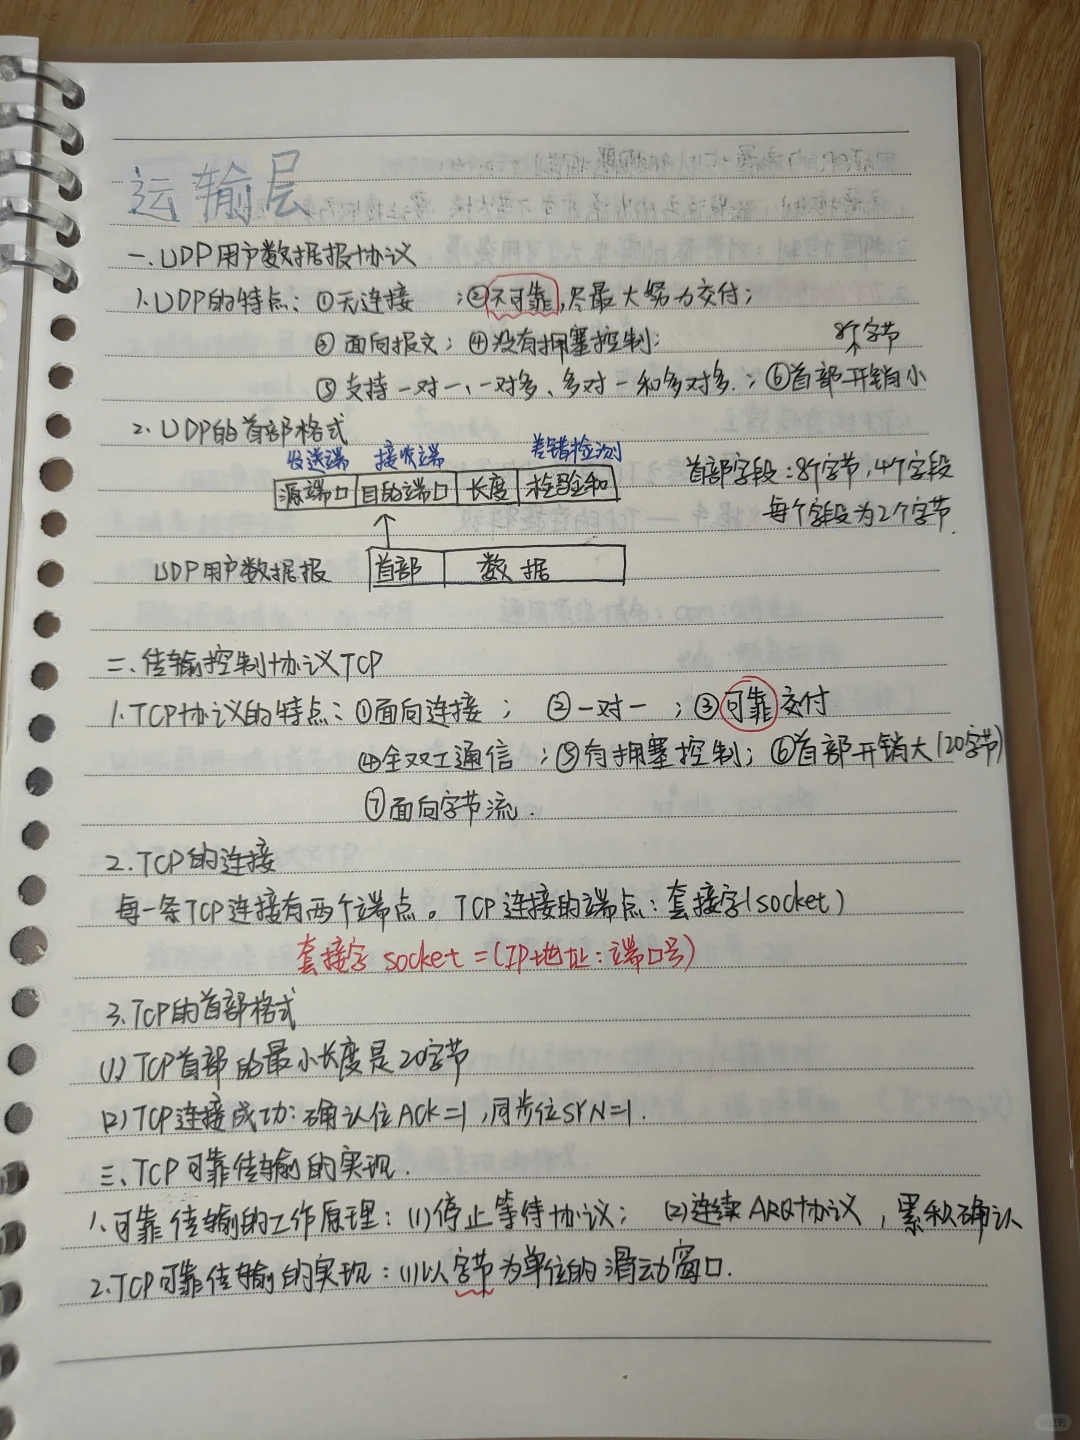 运输层
一.UDP用户数据报协议
1.UDP的特点:①无连接;②不可靠,尽最大努力交付;
③面向报文;④没有拥塞控制;
8个字节
⑤支持一对一、一对多、多对一和多对多.;⑥首部开销小
2.UDP的首部格式
发送端 接收端 差错检测
源端口 目的端口 长度 检验和
首部字段:8个字节,4个字段
每个字段为2个字节.
UDP用户数据报 首部 数据
二.传输控制协议TCP
1.TCP协议的特点:①面向连接;②一对一;③可靠交付
④全双工通信;⑤有拥塞控制;⑥首部开销大(20字节)
⑦面向字节流.
2.TCP的连接
每一条TCP连接有两个端点。TCP连接的端点:套接字(socket)
套接字 socket=(IP地址:端口号)
3.TCP的首部格式
(1)TCP首部的最小长度是20字节
(2)TCP连接成功:确认位ACK=1,同步位SYN=1.
三、TCP可靠传输的实现.
1.可靠传输的工作原理:(1)停止等待协议;(2)连续ARQ协议,累积确认
2.TCP可靠传输的实现:(1)以字节为单位的滑动窗口.